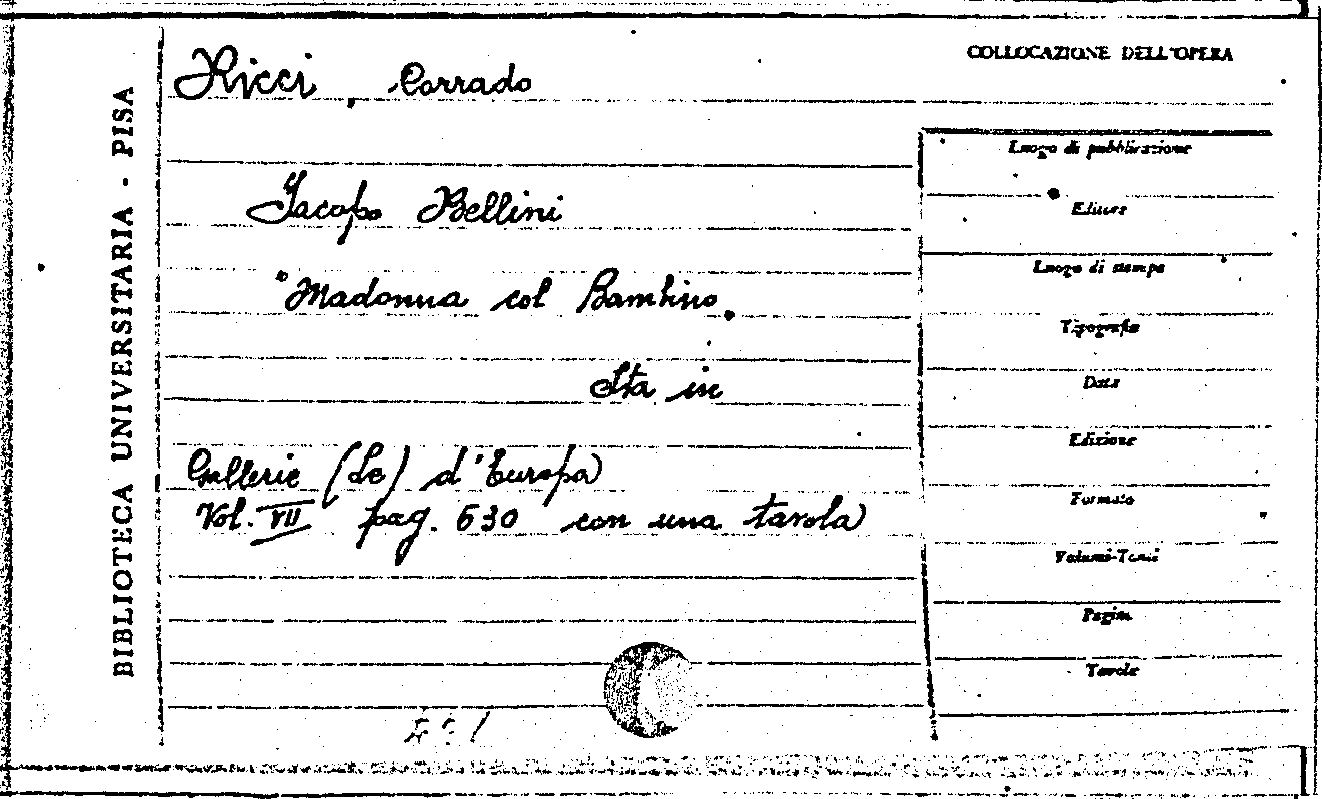 BIBLIOTECA UNIVERSITARIA - PISA
Ricci, Corrado
Jacopo Bellini
"Madonna col Bambino"
Sta in
Gallerie (Le) d'Europa
Vol. VII pag. 630 con una tavola
COLLOCAZIONE DELL'OPERA
Luogo di pubblicazione
Editore
Luogo di stampa
Tipografia
Data
Edizione
Formato
Volumi-Tomi
Pagine
Tavole